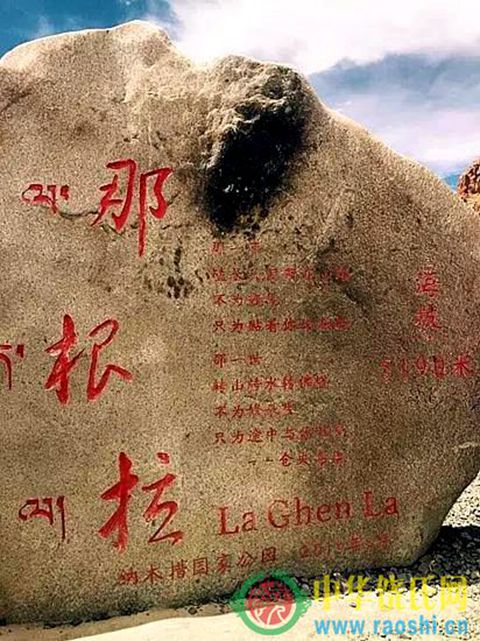 那根拉
那一年
磕长头匍匐在山路
不为觐见
只为贴着你的温暖
那一世
转山转水转佛塔
不为修来世
只为途中与你相见
--仓央嘉措
海拔
5190米
La Ghen La
纳木措国家公园
中华饶氏网
www.raoshi.cn